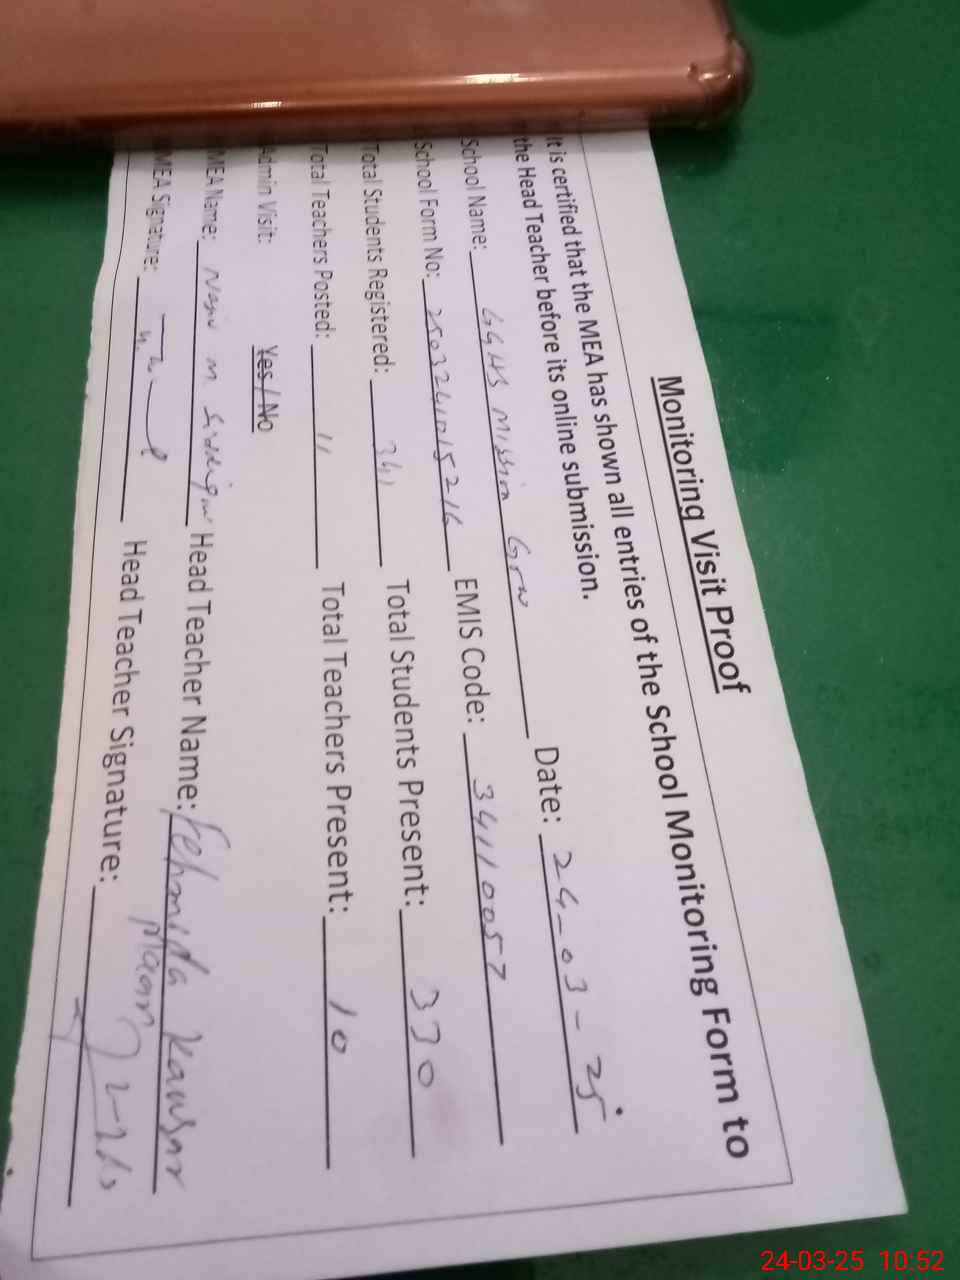 Monitoring Visit Proof
It is certified that the MEA has shown all entries of the School Monitoring Form to
the Head Teacher before its online submission.
School Name: GGHS Mission Grw Date: 24-03-25
School Form No: EMIS Code: 34110057
Total Students Registered: 341 Total Students Present: 330
Total Teachers Posted: 11 Total Teachers Present: 10
Admin Visit: Yes / No
MEA Name: M. Head Teacher Name: Fehmida Kausar
MEA Signature: Head Teacher Signature:
24-03-25 10:52